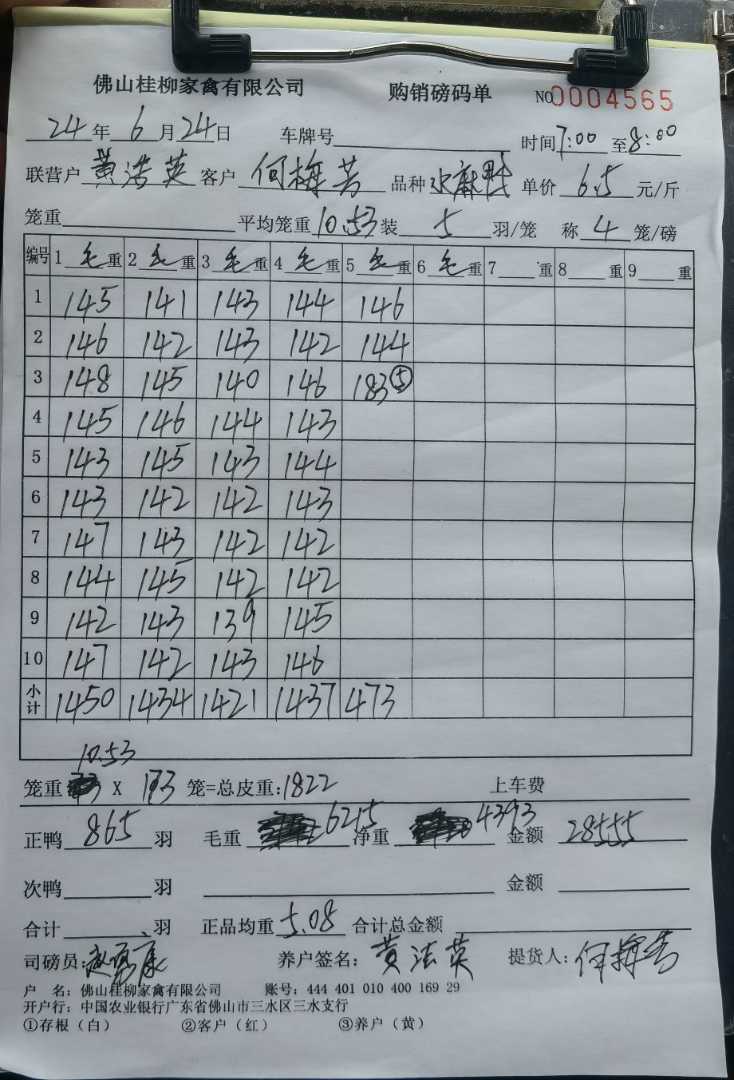 佛山桂柳家禽有限公司 购销磅码单 NO0004565
24年6月24日 车牌号 时间7:00至8:00
联营户 黄浩英 客户 何梅芳 品种 水麻鸭 单价 6.5 元/斤
笼重 平均笼重10.53装 5 羽/笼 称 4 笼/磅
编号 1 毛 重 2 毛 重 3 毛 重 4 毛 重 5 毛 重 6 毛 重 7 重 8 重 9 重
1 145 141 143 144 146
2 146 142 143 142 144
3 148 145 140 146 183⑤
4 145 146 144 143
5 143 145 143 144
6 143 142 142 143
7 147 143 142 142
8 144 145 142 142
9 142 143 139 145
10 147 142 143 146
小计 1450 1434 1421 1437 473
10.53
笼重 X 173 笼=总皮重:1822 上车费
正鸭 865 羽 毛重 6215 净重 4393 金额 28555
次鸭 羽 金额
合计 羽 正品均重 5.08 合计总金额
司磅员: 养户签名: 黄浩英 提货人: 何梅芳
户 名: 佛山桂柳家禽有限公司 账号: 444 401 010 400 169 29
开户行: 中国农业银行广东省佛山市三水区三水支行
①存根（白） ②客户（红） ③养户（黄）